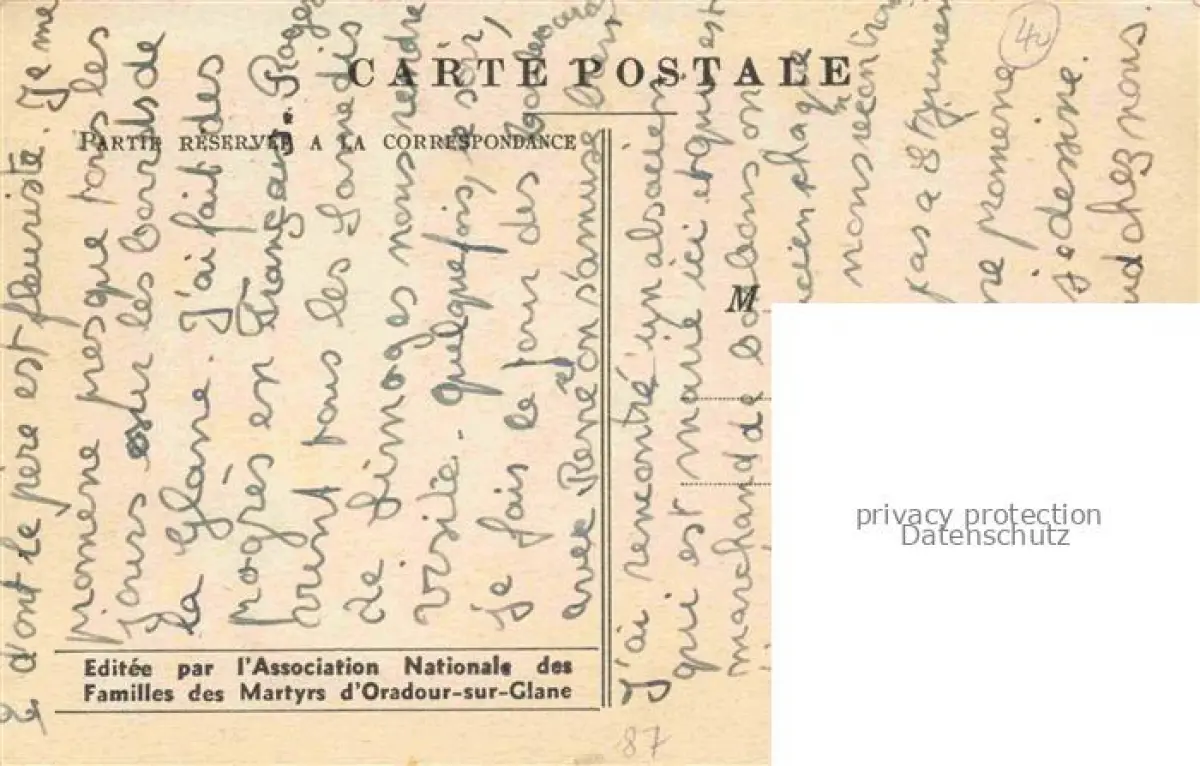 CARTE POSTALE
PARTIE RÉSERVÉE A LA CORRESPONDANCE
dont le père est fleuriste. Je me
promène presque tous les
jours sur les bords de
la Glane. J'ai fait des
progrès en Français. Roger
vient tous les Samedis
de Limoges nous rendre
visite. quelquefois, le soir,
je fais le tour des
avec René on s'amuse bien
J'ai rencontré un alsacien
qui est marié ici et qui est
marchand de
chaque
nous
pas à St Junien
promena
je dessine.
chez nous.
M
Editée par l'Association Nationale des
Familles des Martyrs d'Oradour-sur-Glane
40
87
privacy protection
Datenschutz